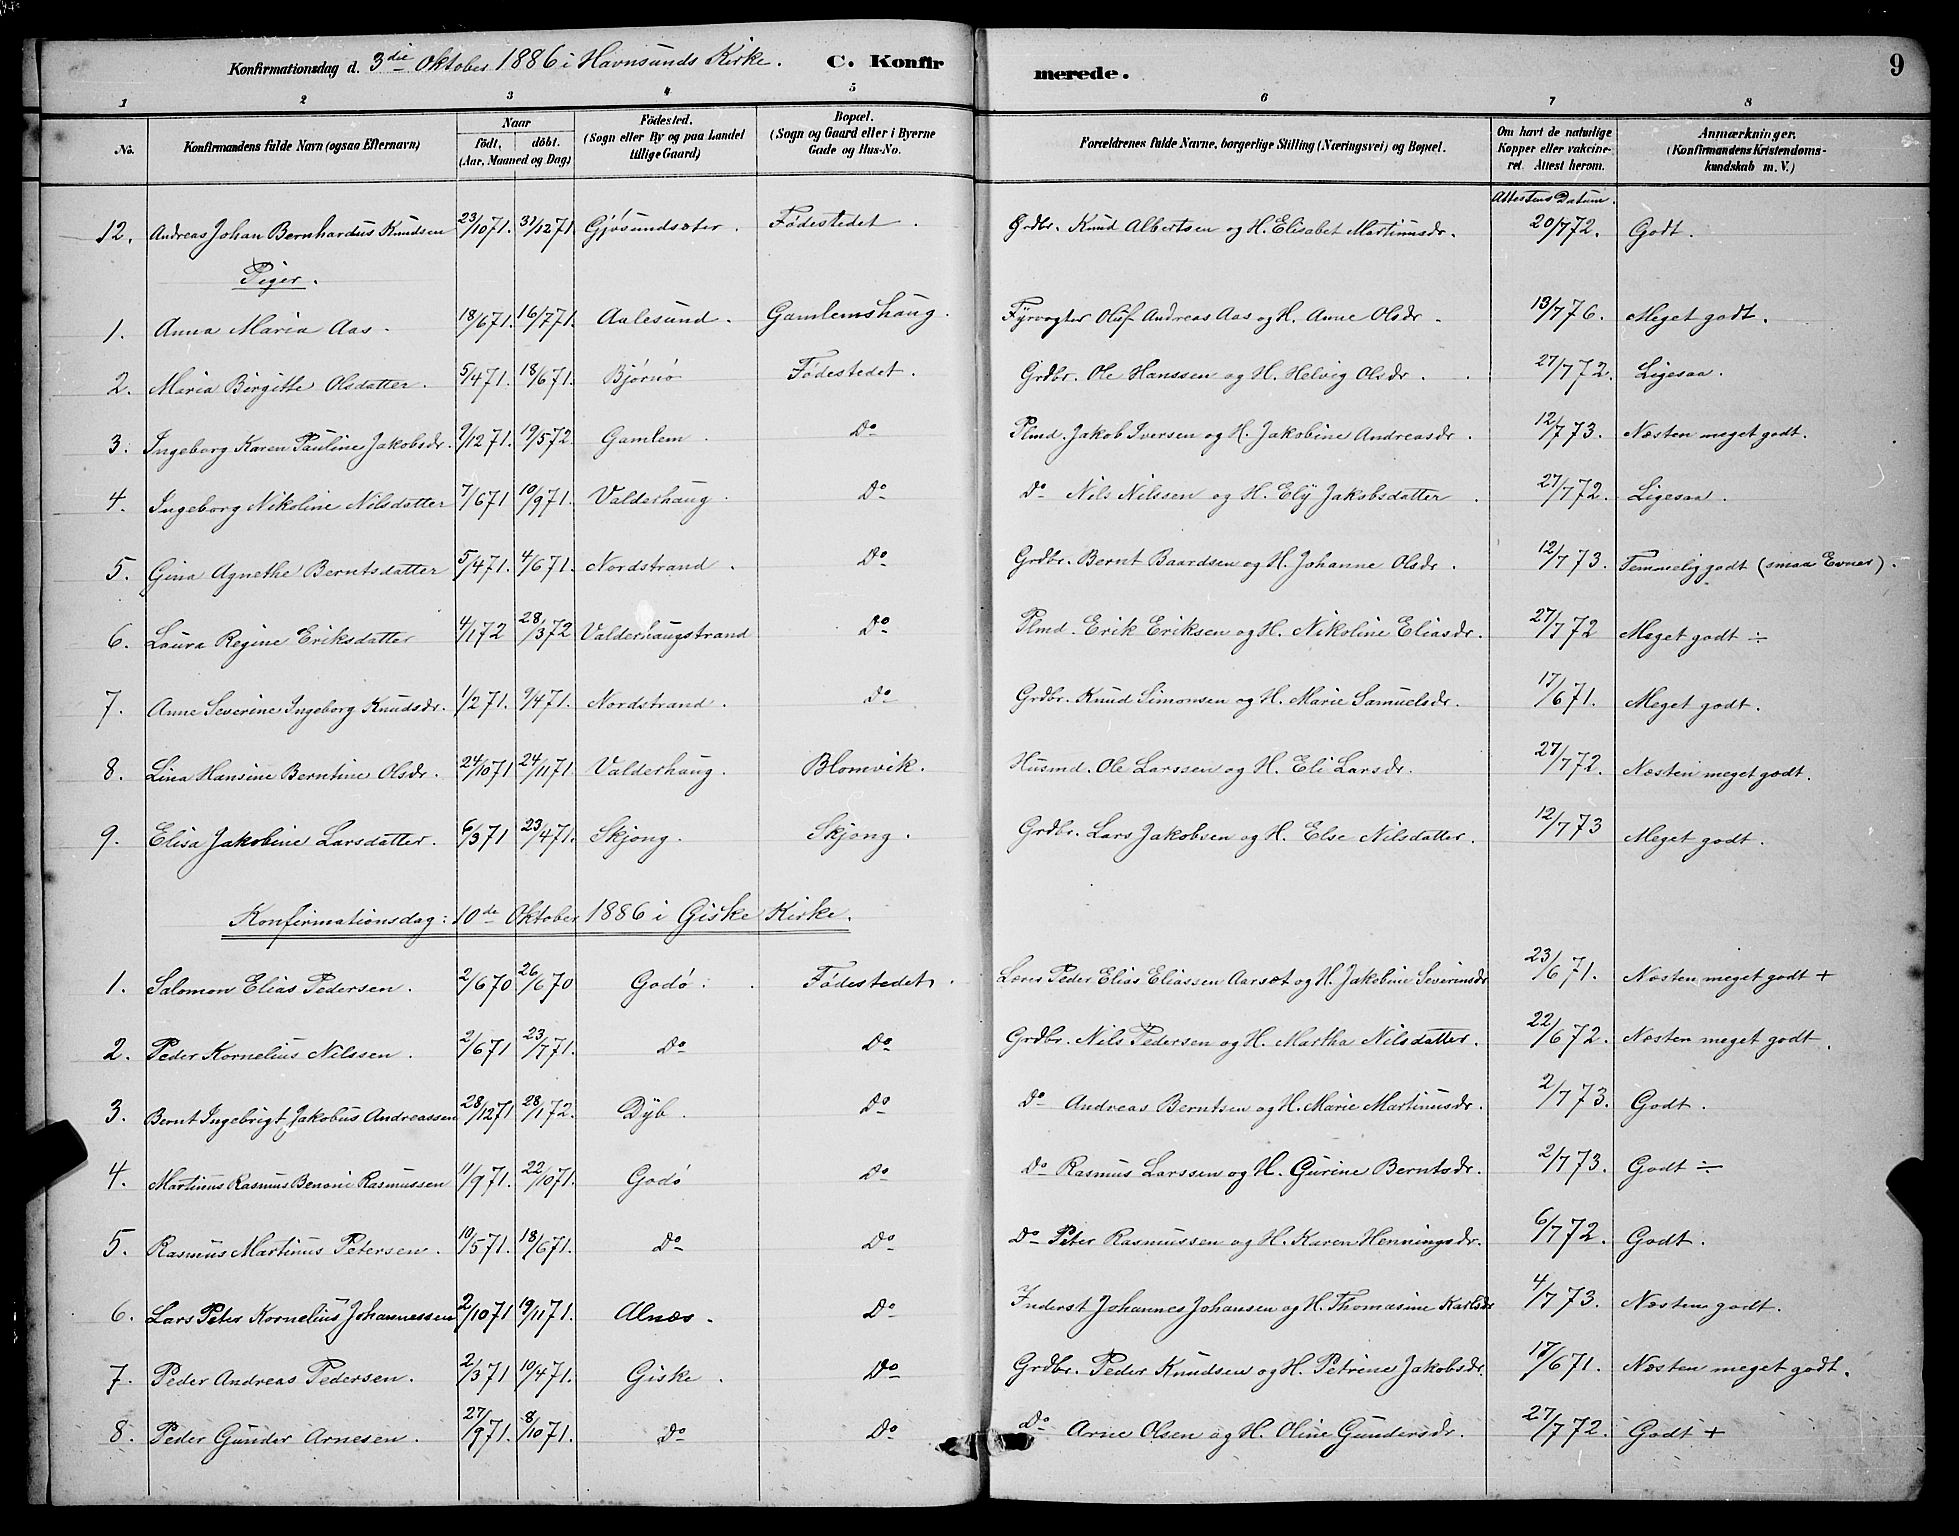 Konfirmationsdag d. 3die Oktober 1886 i Havnsunds Kirke. C. Konfirmerede. 9
1 2 3 4 5 6 7 8
No. Konfirmandens fulde Navn (ogsaa Efternavn) Naar født, døbt. (Aar, Maaned og Dag) Fødested. (Sogn eller By og paa Landet tillige Gaard) Bopæl. (Sogn og Gaard eller i Byerne Gade og Hus-No. Forældrenes fulde Navne, borgerlige Stilling (Næringsvei) og Bopæl. Om havt de naturlige Kopper eller vakcineret. Attest herom. Anmærkninger. (Konfirmandens Kristendomskundskab m. V.)
Attestens Datum.
12. Andreas Johan Bernhardus Knudsen 23/1071. 31/1271 Gjøsundsæter. Fødestedet. Grdbr. Knud Albertsen og H. Elisabet Martinusdr. 20/772. Godt.
Piger.
1. Anna Maria Aas. 18/671. 16/771. Aalesund. Gamlemshaug. Fyrvogter Oluf Andreas Aas og H. Anne Olsdr. 13/776. Meget godt.
2. Maria Birgitte Olsdatter. 5/471. 18/671. Bjørnø Fødestedet. Grdbr. Ole Hanssen og H. Helvig Olsdr. 27/772. Ligesaa.
3. Ingeborg Karen Pauline Jakobsdr. 9/1271. 19/572 Gamlem. Do Plmd. Jakob Iversen og H. Jakobine Andreasdr. 12/773. Næsten meget godt.
4. Ingeborg Nikoline Nilsdatter 7/671 10/971. Valderhaug. Do Do Nils Nilssen og H. Ely Jakobsdatter. 27/772. Ligesaa.
5. Gina Agnethe Berntsdatter 5/471. 4/671. Nordstrand. Do Grdbr. Bernt Baardsen og H. Johanne Olsdr. 12/773. Temmelig godt (smaa Evner).
6. Laura Regine Eriksdatter 4/172 28/372 Valderhaugstrand Do Plmd. Erik Eriksen og H. Nikoline Eliasdr. 27/772 Meget godt ÷
7. Anne Severine Ingeborg Knudsdr. 1/271. 9/471. Nordstrand. Do Grdbr. Knud Simonsen og H. Marie Samuelsdr. 17/671. Meget godt.
8. Lina Hansine Berntine Olsdr. 24/1071 24/1171. Valderhaug. Blomvik. Husmd. Ole Larssen og H. Eli Larsdr. 27/772. Næsten meget godt.
9. Elisa Jakobine Larsdatter. 6/371 23/471. Skjong. Skjong. Grdbr. Lars Jakobsen og H. Else Nilsdatter. 12/773 Meget godt.
Konfirmationsdag: 10de Oktober 1886 i Giske Kirke.
1. Salomon Elias Pedersen. 2/670 26/670 Godø. Fødestedet. Lærer Peder Elias Eliassen Aarsæt og H. Jakobine Severinsdr 23/671. Næsten meget godt +
2. Peder Kornelius Nilssen. 2/671 23/771. Do Do Grdbr. Nils Pedersen og H. Martha Nilsdatter. 22/672. Næsten meget godt.
3. Bernt Ingebrigt Jakobus Andreassen 28/1271 28/172. Dyb. Do Do Andreas Berntsen og H. Marie Martinusdr. 2/773. Godt.
4. Martinus Rasmus Benoni Rasmussen 11/971. 22/1071. Godø Do Do Rasmus Larssen og H. Gurine Berntsdr. 2/773. Godt ÷
5. Rasmus Martinus Petersen. 10/571. 18/671. Do Do Do Peter Rasmussen og H. Karen Henningsdr. 6/772. Godt.
6. Lars Peter Kornelius Johannessen 2/1071 19/1171. Alnæs. Do Inderst Johannes Johansen og H. Thomasine Karlsdr 4/773. Næsten godt.
7. Peder Andreas Pedersen. 2/371 10/471. Giske. Do Grdbr. Peder Knudsen og H. Petrine Jakobsdr. 17/671. Næsten meget godt.
8. Peder Gunder Arnesen. 27/971. 8/1071. Do Do Do Arne Olsen og H. Oline Gundersdr. 27/772. Godt +